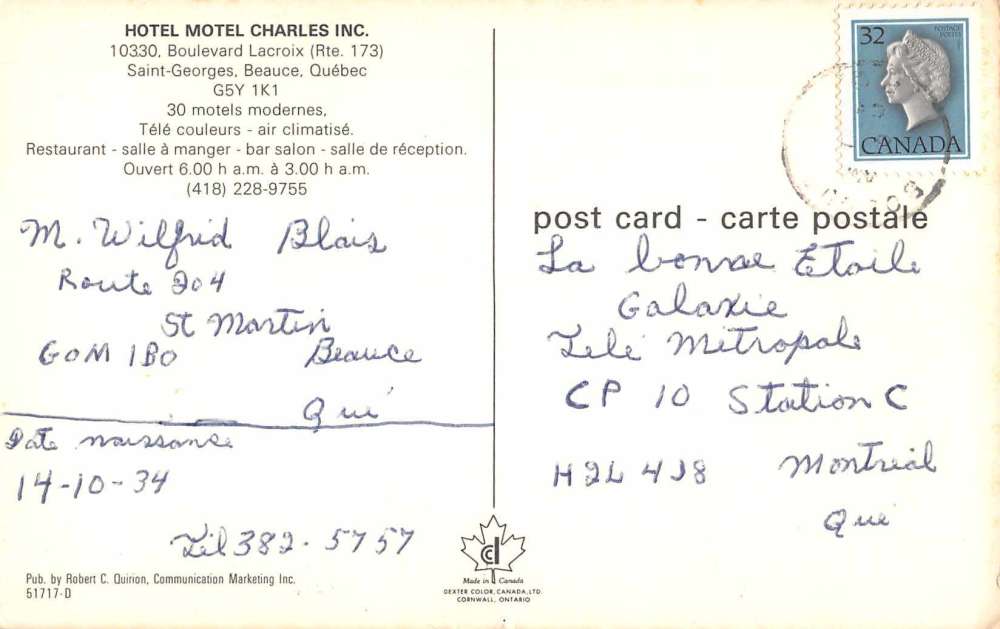 HOTEL MOTEL CHARLES INC.
10330, Boulevard Lacroix (Rte. 173)
Saint-Georges, Beauce, Québec
G5Y 1K1
30 motels modernes,
Télé couleurs - air climatisé.
Restaurant - salle à manger - bar salon - salle de réception.
Ouvert 6.00 h a.m. à 3.00 h a.m.
(418) 228-9755
M. Wilfrid Blais
Route 204
St Martin
G0M 1B0 Beauce
Qué
Date naissance
14-10-34
Tél 382-5757
Pub. by Robert C. Quirion, Communication Marketing Inc.
51717-D
Made in Canada
DEXTER COLOR, CANADA, LTD.
CORNWALL, ONTARIO
32
POSTAGE
POSTES
CANADA
post card - carte postale
La bonne Etoile
Galaxie
Télé Métropole
CP 10 Station C
H2L 4J8 Montréal
Qué